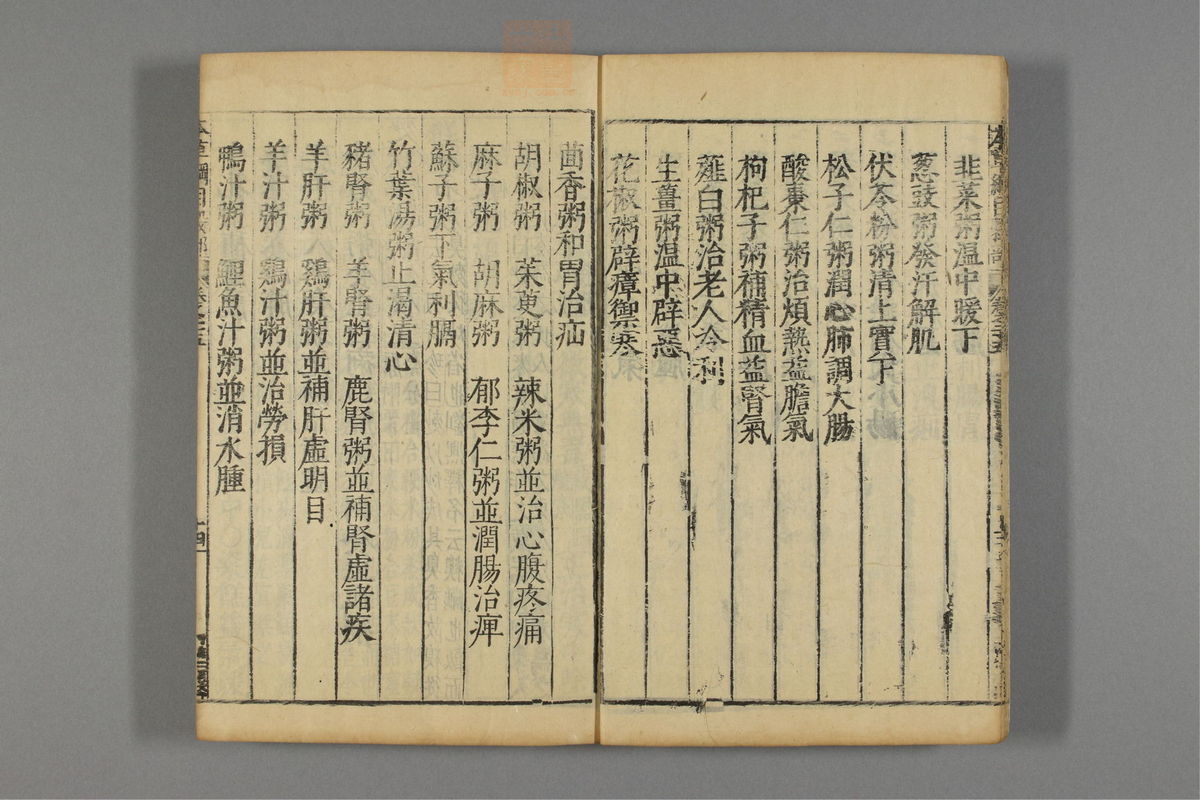 韭菜粥温中暖下
葱豉粥發汗解肌
伏苓粉粥清上實下
松子仁粥潤心肺調大腸
酸棗仁粥治煩熱益膽氣
枸杞子粥補精血益腎氣
薤白粥治老人冷利
生薑粥温中辟惡
花椒粥辟瘴禦寒
茴香粥和胃治疝
胡椒粥　茱萸粥　辣米粥並治心腹疼痛
麻子粥　胡麻粥　郁李仁粥並潤腸治痺
蘇子粥下氣利膈
竹葉湯粥止渴清心
豬腎粥　羊腎粥　鹿腎粥並補腎虛諸疾
羊肝粥　鷄肝粥並補肝虛明目
羊汁粥　鷄汁粥並治勞損
鴨汁粥　鯉魚汁粥並消水腫